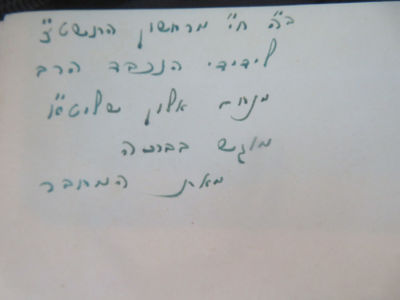 ב"ה ח"י מרחשון
לידידי הנכבד הרב
מנחם אלון שליט"א
מוגש בברכה
מאת המחבר